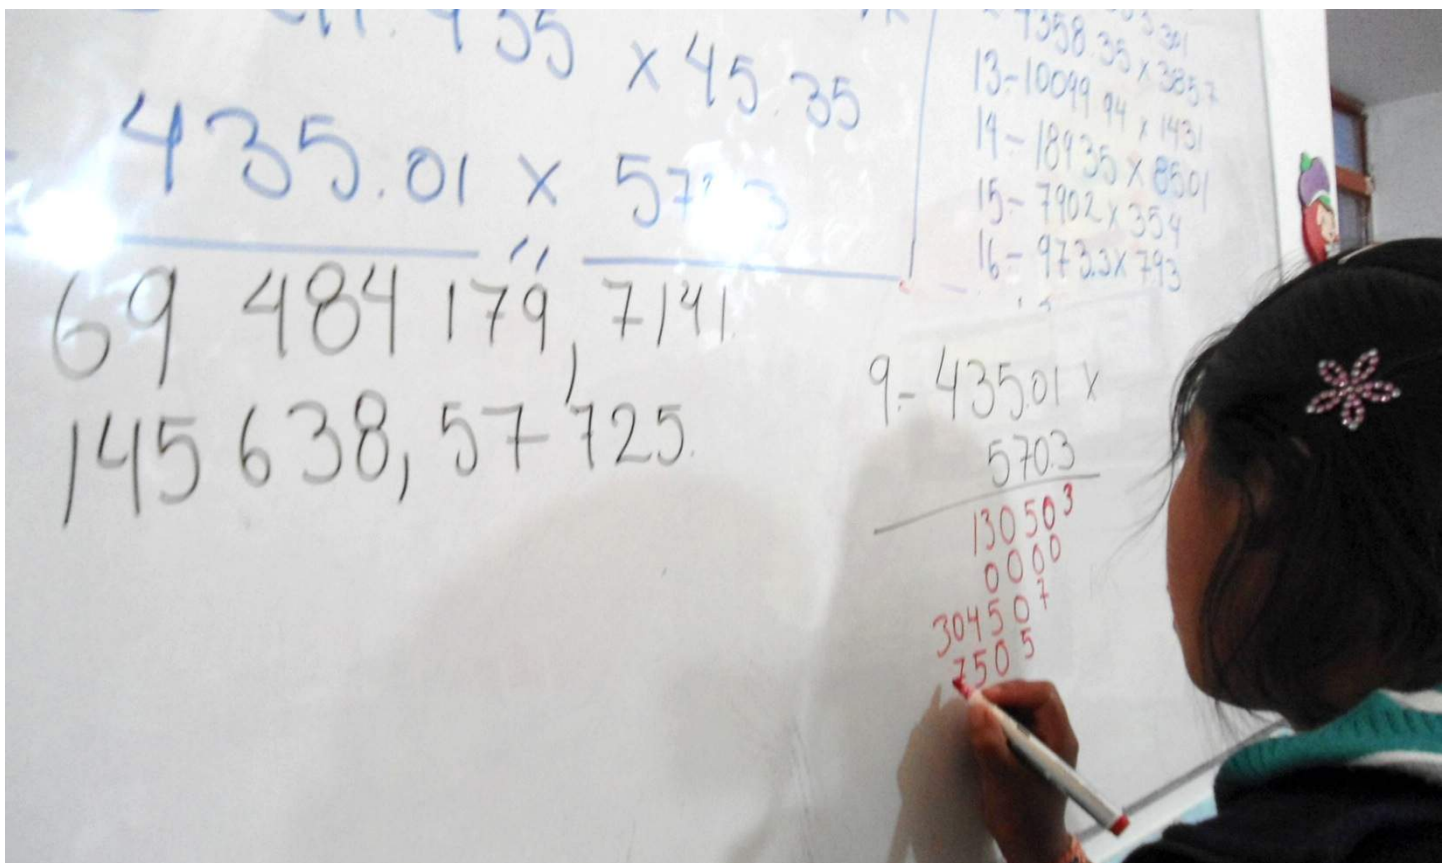 455 x 45.35
435.01 x
69 484 179, 7141.
145 638, 57 725.
4358.35 x 3857
13- 10099.94 x 1431
14- 18935 x 8501
15- 7902 x 354
16- 973.3 x 793
9.- 435.01 x
570.3
130503
0000
304507
7505